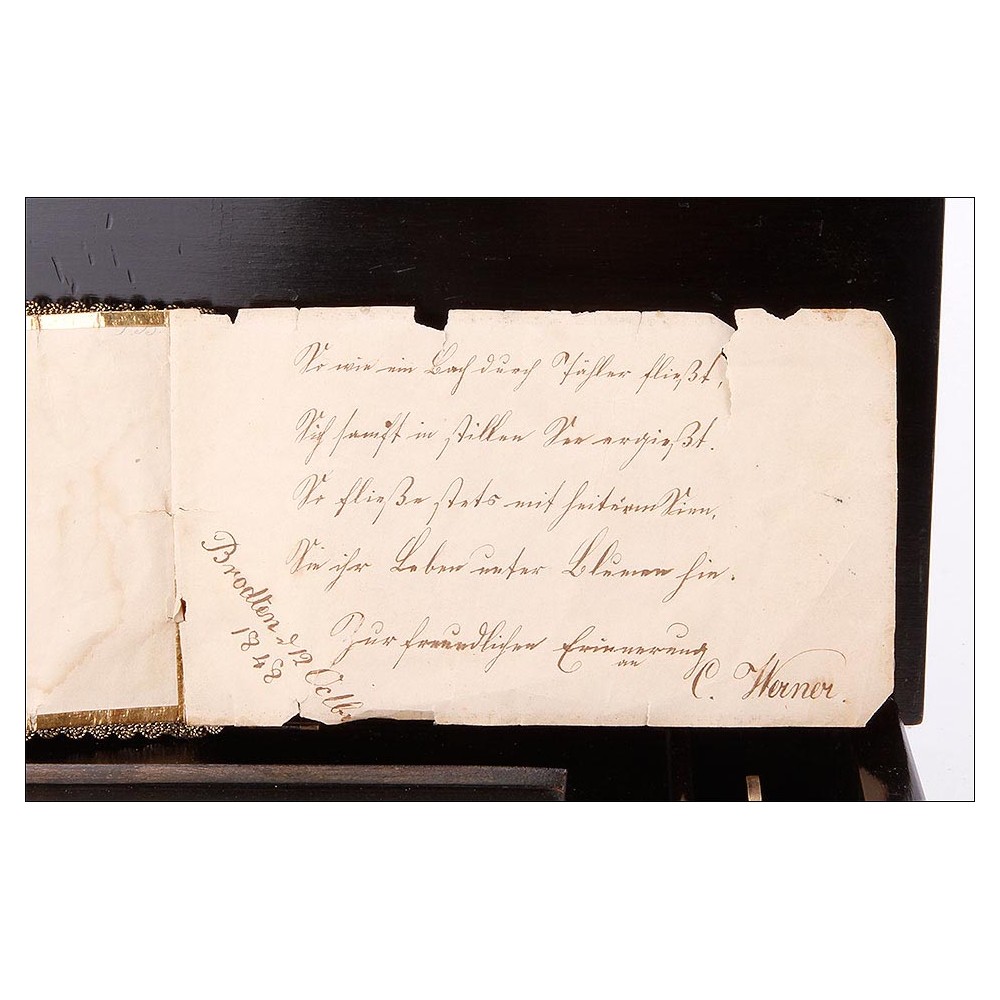 So wie ein Bach durch Thäler fließt,
Sich sanft in stillen See ergießt.
So fließe stets mit heiterm Sinn,
Sie ihr Leben unter Blumen hin.
Zur freundlichen Erinnerung
an
C. Werner.
Brodten d 12 Octbr
1848